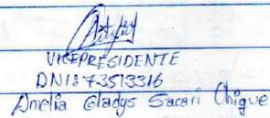 VICEPRESIDENTE
DNI: 73513316
Amelia Gladys Sacari Chique